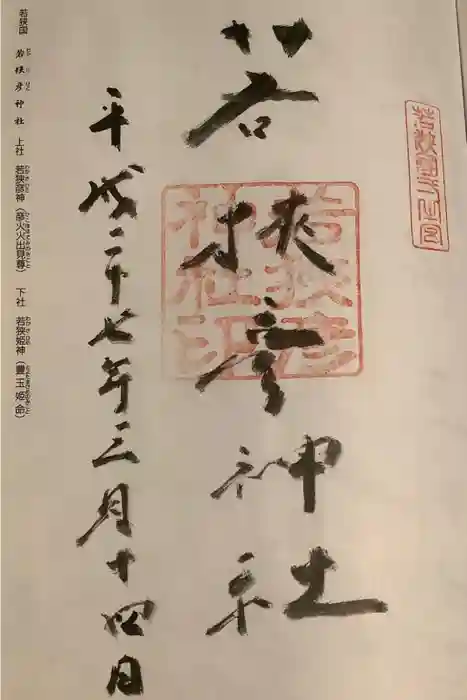 若狭国一之宮
若狭彦神社
若狭彦神社印
平成二十七年三月十四日
若狭国 若狭彦神社 上社 若狭彦神(彦火火出見尊) 下社 若狭姫神(豊玉姫命)